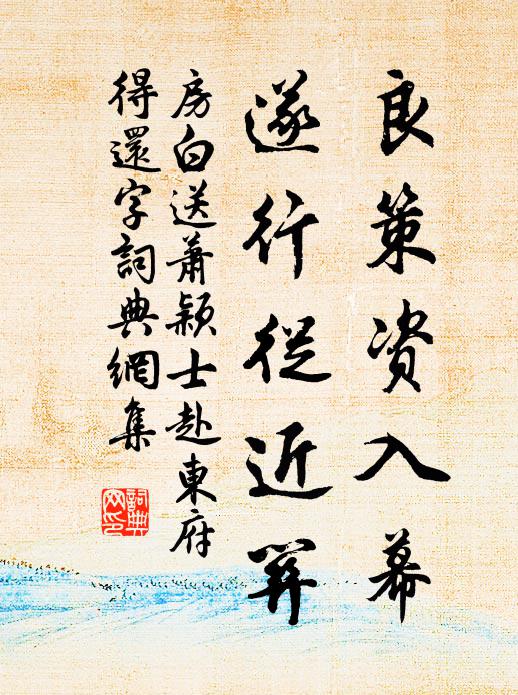 良策资入幕
遂行從近関
房白送蕭穎士赴東府
得還字詞典網集
詞典
网印